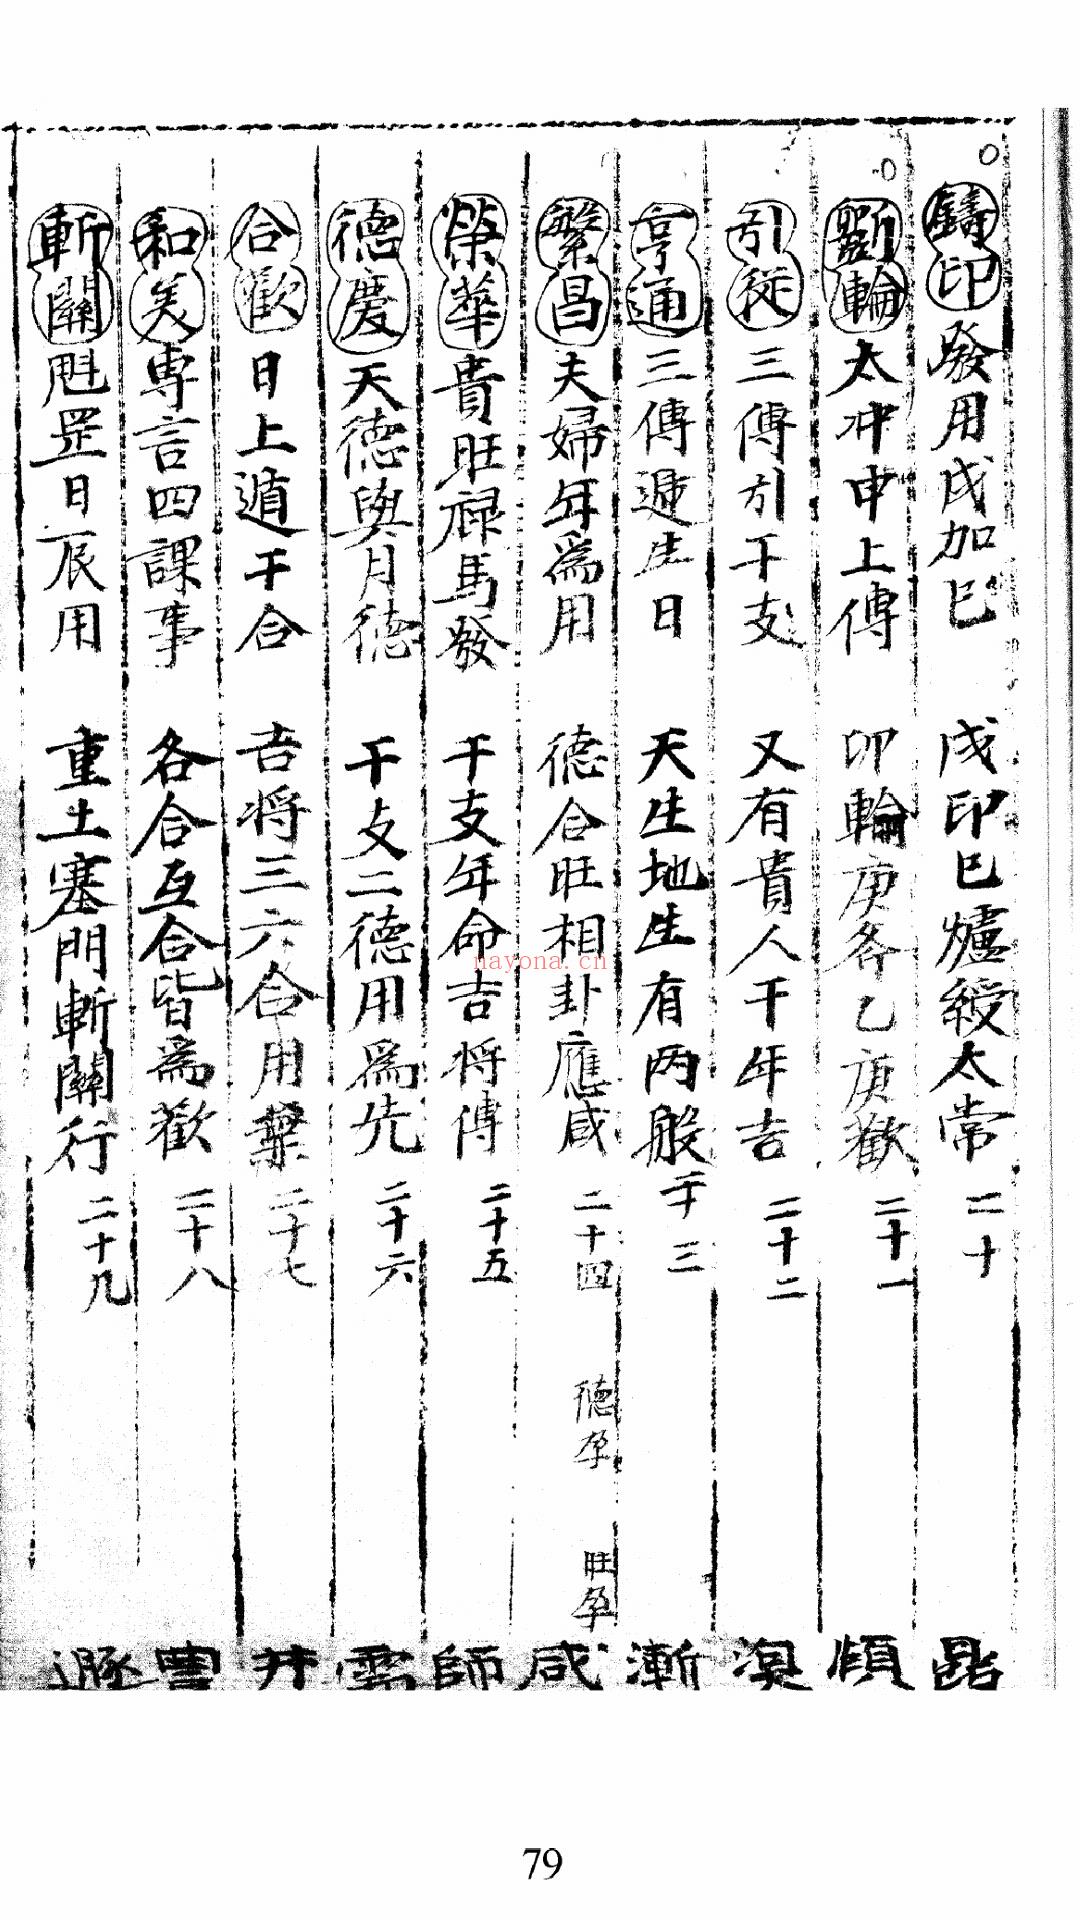 鑄印 發用戌加巳 戌印巳爐綬太常 二十
斵輪 太冲申上傳 卯輪庚斧乙庚歡 二十一
引從 三傳引干支 又有貴人干年吉 二十二
亨通 三傳遞生日 天生地生有两般 二十三
繁昌 夫婦年為用 德合旺相卦應咸 二十四 德孕 旺孕
榮華 貴旺祿馬發 干支年命吉将傳 二十五
德慶 天德與月德 干支二德用為先 二十六
合歡 日上遁干合 吉将三六合用 二十七
和美 専言四課事 各合互合皆為歡 二十八
斬關 魁罡日辰用 重土塞門斬關行 二十九
鼎
頤
渙
漸
咸
師
需
井
豊
遯
nayona.cn
79